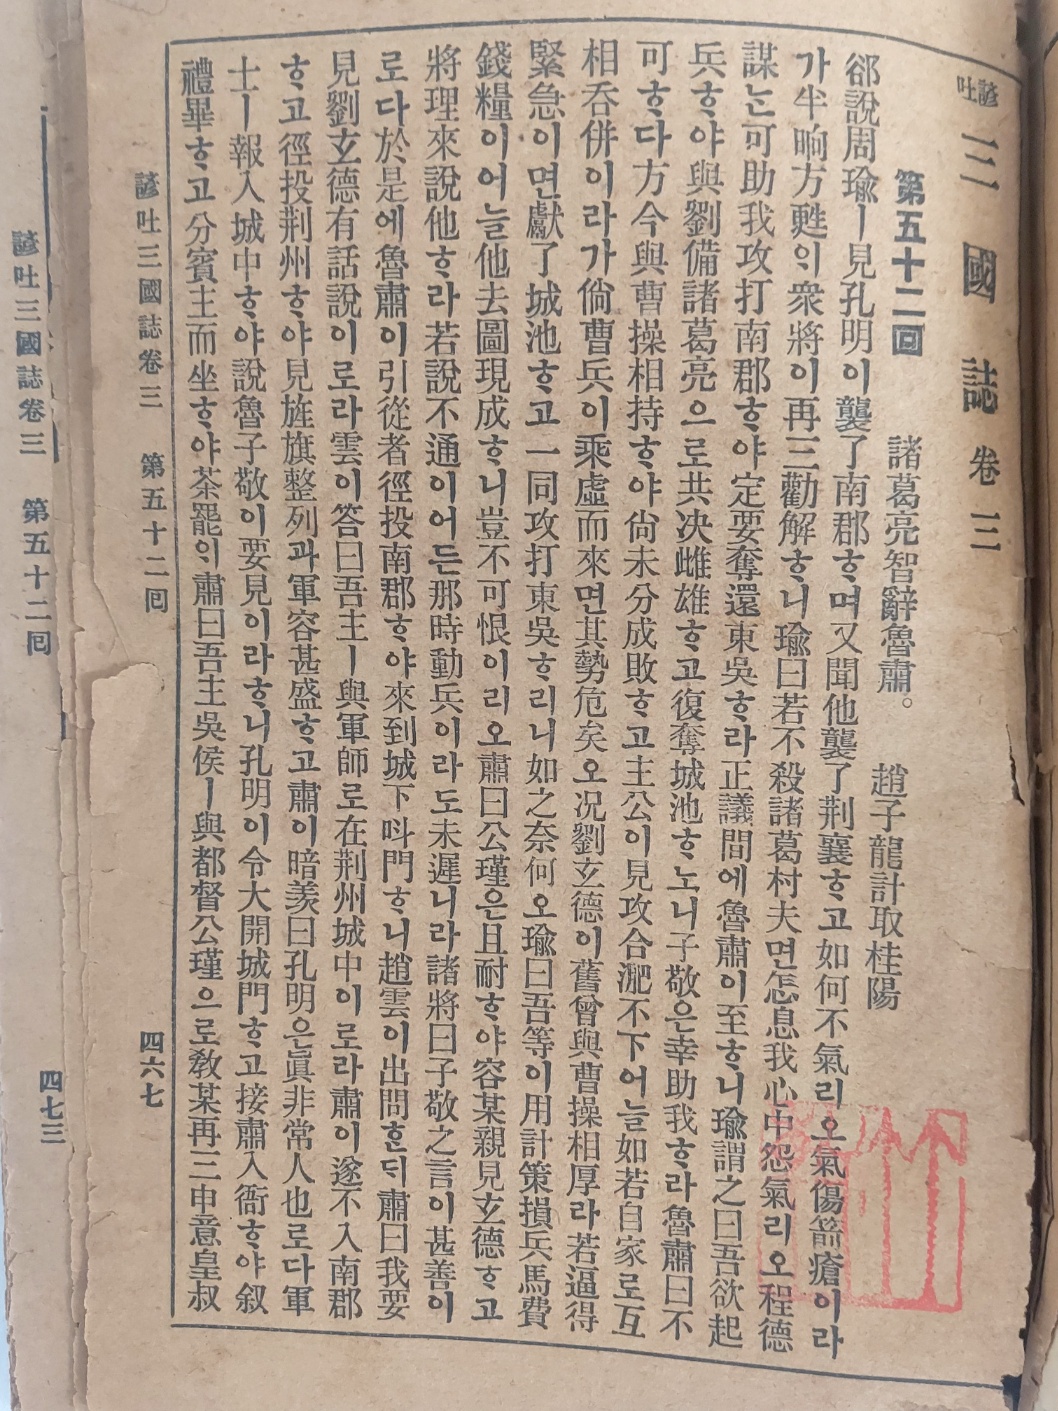 諺吐 三國誌 卷三
第五十二回 諸葛亮智辭魯肅。 趙子龍計取桂陽
郤說周瑜ㅣ見孔明이襲了南郡ᄒᆞ며又聞他襲了荆襄ᄒᆞ고如何不氣리오氣傷箭瘡이라
가半晌方甦의衆將이再三勸解ᄒᆞ니瑜曰若不殺諸葛村夫면怎息我心中怨氣리오程德
謀ᄂᆞᆫ可助我攻打南郡ᄒᆞ야定要奪還東吳ᄒᆞ라正議間에魯肅이至ᄒᆞ니瑜謂之曰吾欲起
兵ᄒᆞ야與劉備諸葛亮으로共决雌雄ᄒᆞ고復奪城池ᄒᆞ노니子敬은幸助我ᄒᆞ라魯肅曰不
可ᄒᆞ다方今與曹操相持ᄒᆞ야尙未分成敗ᄒᆞ고主公이見攻合淝不下어ᄂᆞᆯ如若自家로互
相呑併이라가倘曹兵이乘虛而來면其勢危矣오况劉玄德이舊曾與曹操相厚라若逼得
緊急이면獻了城池ᄒᆞ고一同攻打東吳ᄒᆞ리니如之奈何오瑜曰吾等이用計策損兵馬費
錢糧이어늘他去圖現成ᄒᆞ니豈不可恨이리오肅曰公瑾은且耐ᄒᆞ야容某親見玄德ᄒᆞ고
將理來說他ᄒᆞ라若說不通이어든那時動兵이라도未遲니라諸將曰子敬之言이甚善이
로다於是에魯肅이引從者徑投南郡ᄒᆞ야來到城下呌門ᄒᆞ니趙雲이出問ᄒᆞᆫᄃᆡ肅曰我要
見劉玄德有話說이로라雲이答曰吾主ㅣ與軍師로在荆州城中이로라肅이遂不入南郡
ᄒᆞ고徑投荆州ᄒᆞ야見旌旗整列과軍容甚盛ᄒᆞ고肅이暗羨曰孔明은眞非常人也로다軍
士ㅣ報入城中ᄒᆞ야說魯子敬이要見이라ᄒᆞ니孔明이令大開城門ᄒᆞ고接肅入衙ᄒᆞ야叙
禮畢ᄒᆞ고分賓主而坐ᄒᆞ야茶罷의肅曰吾主吳侯ㅣ與都督公瑾으로敎某再三申意皇叔
諺吐三國誌卷三 第五十二回 四六七
諺吐三國誌卷三 第五十二回 四七三